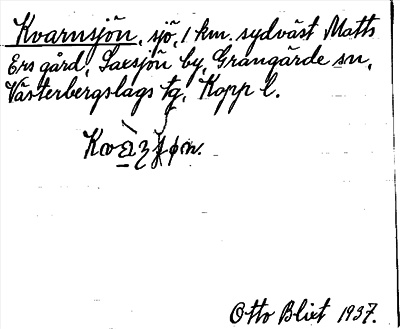 Kvarnsjön, sjö, 1 km. sydväst Matts
Ers gård, Saxsjön by, Grangärde sn,
Västerbergslags tg, Kopp l.
Otto Blixt 1937.